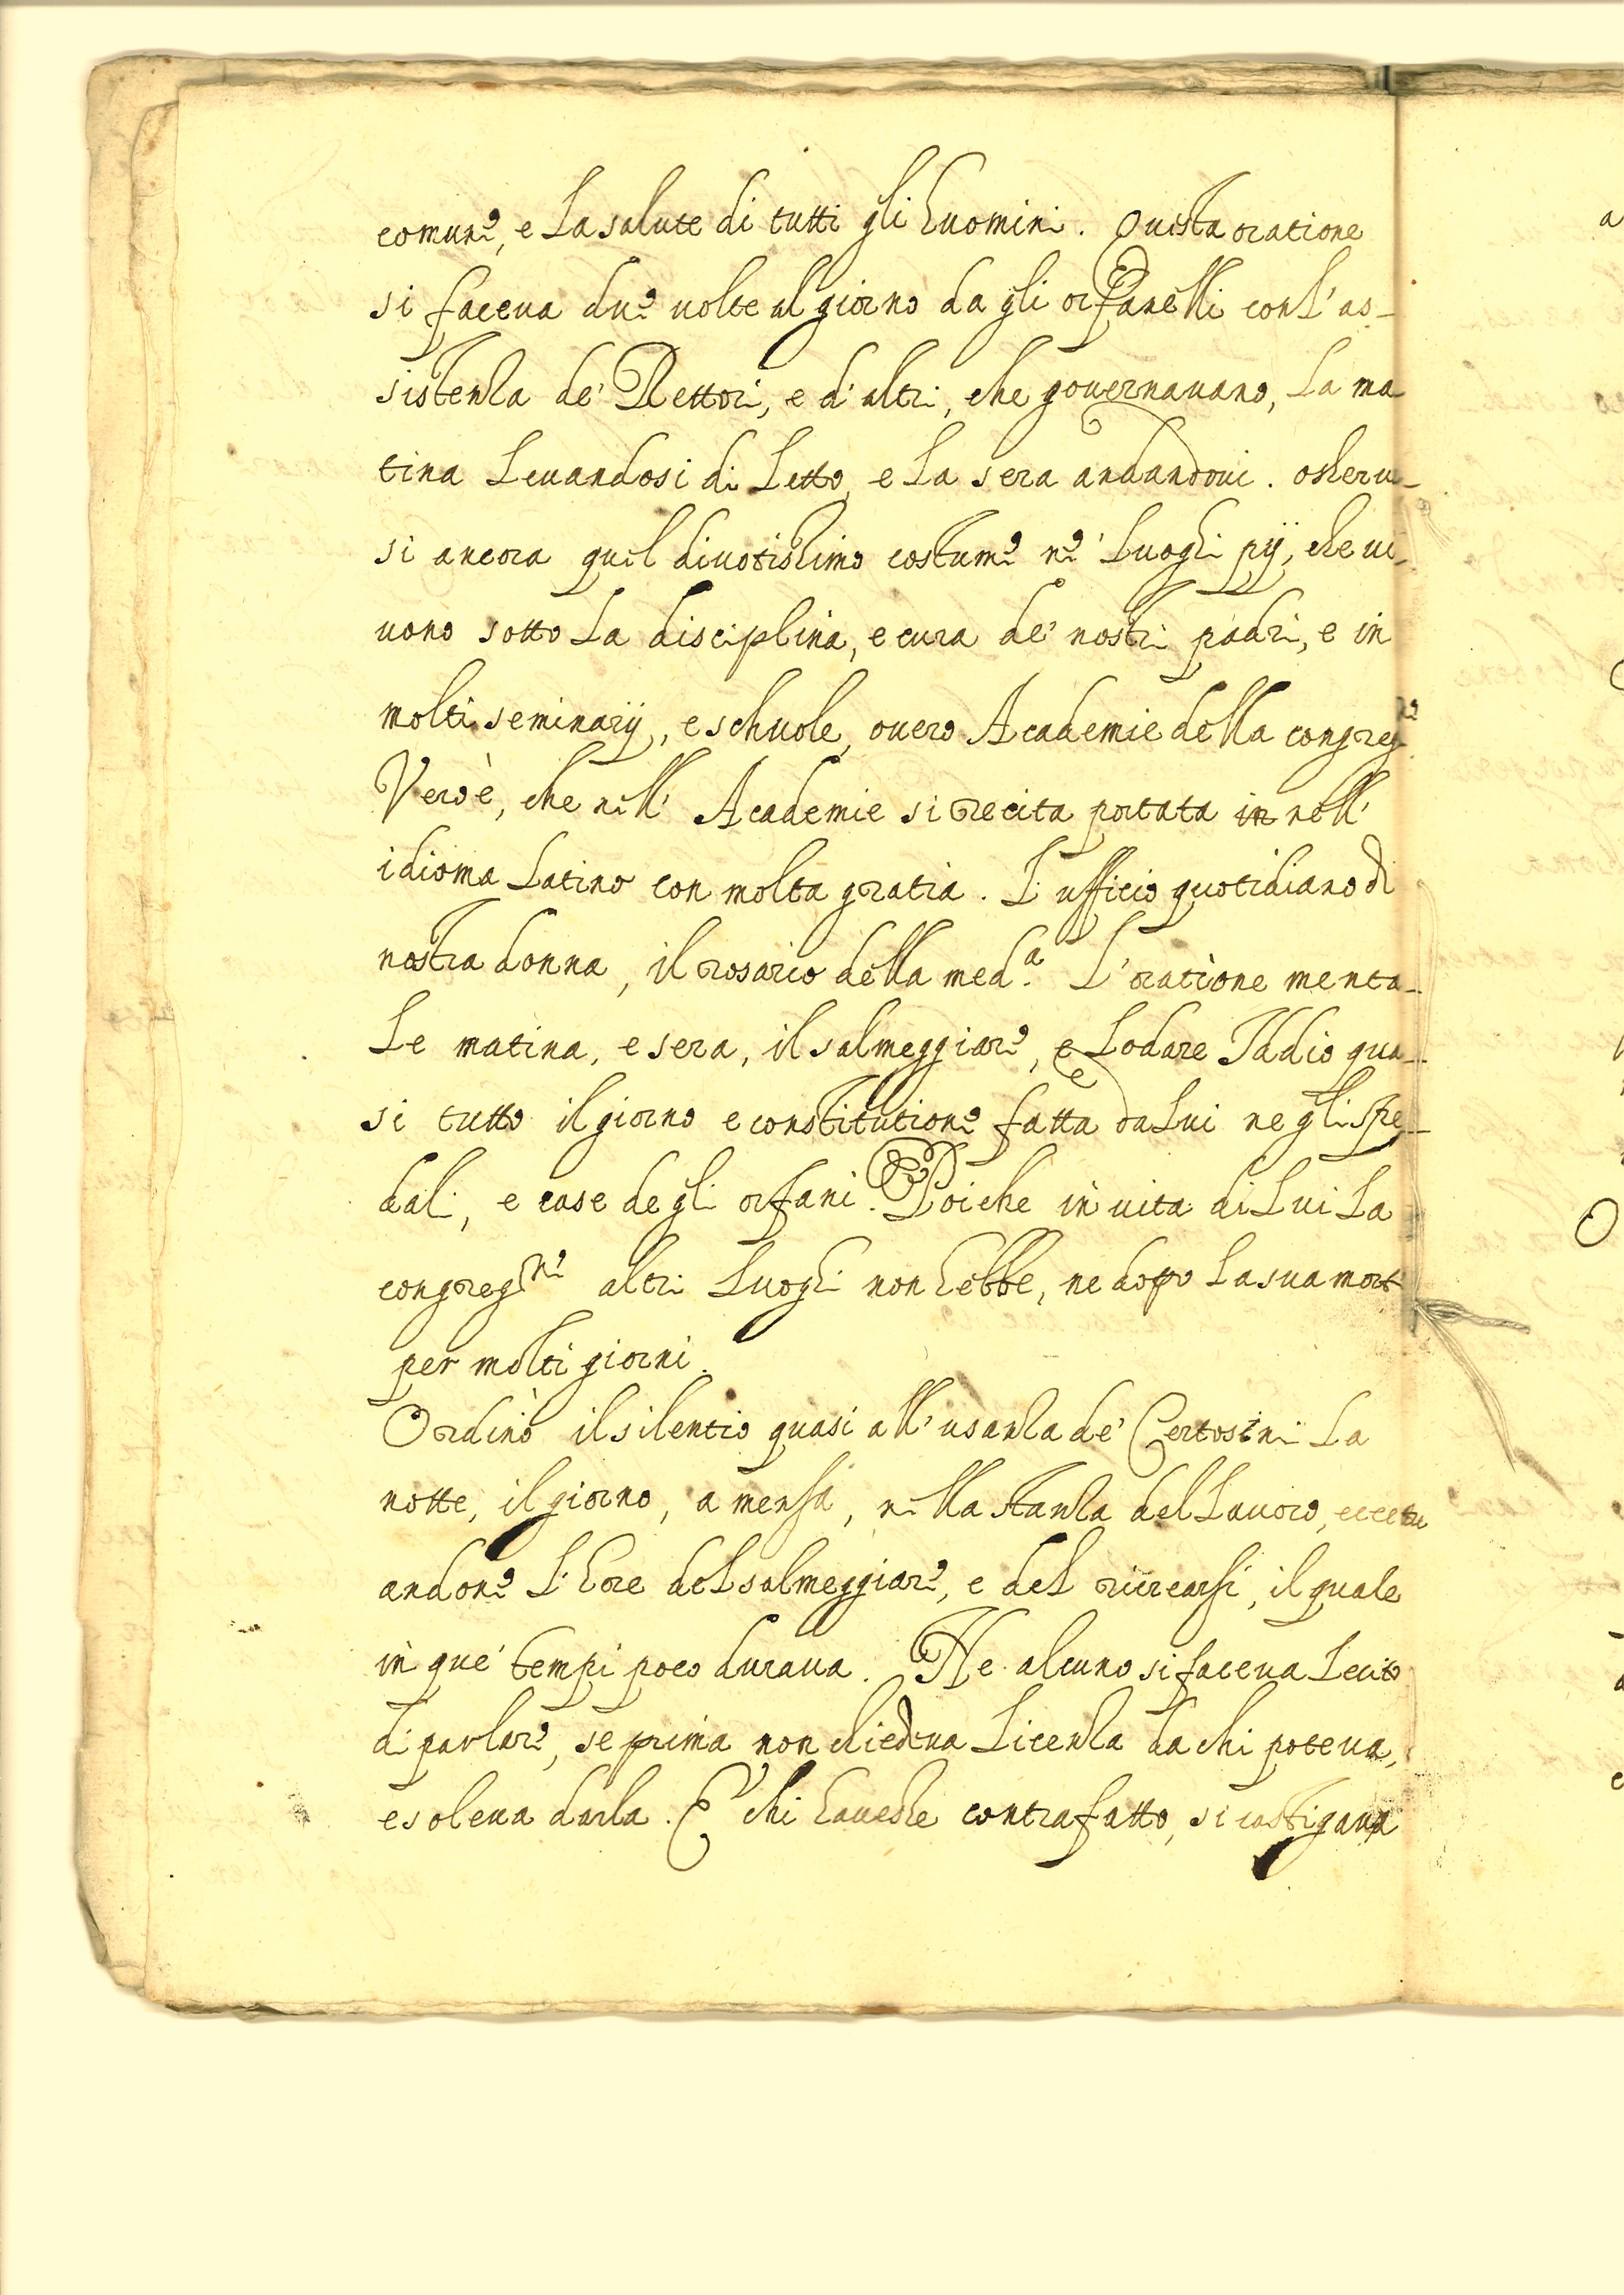 comune, e La salute di tutti gli huomini. Questa oratione
si faceua due uolte al giorno da gli orfanelli con L'as-
sistenza de' Rettori, e d'altri, che gouernauano, La ma
tina Leuandosi di Letto, e La sera andandoui. osseru-
si ancora quel diuotissimo costume ne' Luoghi pij, che ui-
uono sotto La disciplina, e cura de' nostri padri, e in
molti seminarij, e schuole, ouero Academie della congreg.ne
Vero è, che nell' Academie si recita portata in nell'
idioma Latino con molta gratia. L'ufficio quotidiano di
nostra donna, il rosario della med.a L'oratione menta-
Le matina, e sera, il salmeggiare, e Lodare Iddio qua-
si tutto il giorno e constitutione fatta da Lui ne gli spe-
dali, e case de gli orfani. Poiche in uita di Lui La
congreg.ne altri Luoghi non hebbe, ne dopo La sua morte
per molti giorni.
Ordinò il silentio quasi all'usanza de' Certosini La
notte, il giorno, a mensa, nella stanza del Lauoro, eccetu
andone L'hore del salmeggiare, e del ricrearsi, il quale
in que' tempi poco duraua. Ne alcuno si faceua Lecito
di parlare, se prima non chiedeua Licenza da chi poteua,
e soleua darla. E' chi hauesse contrafatto, si castigaua